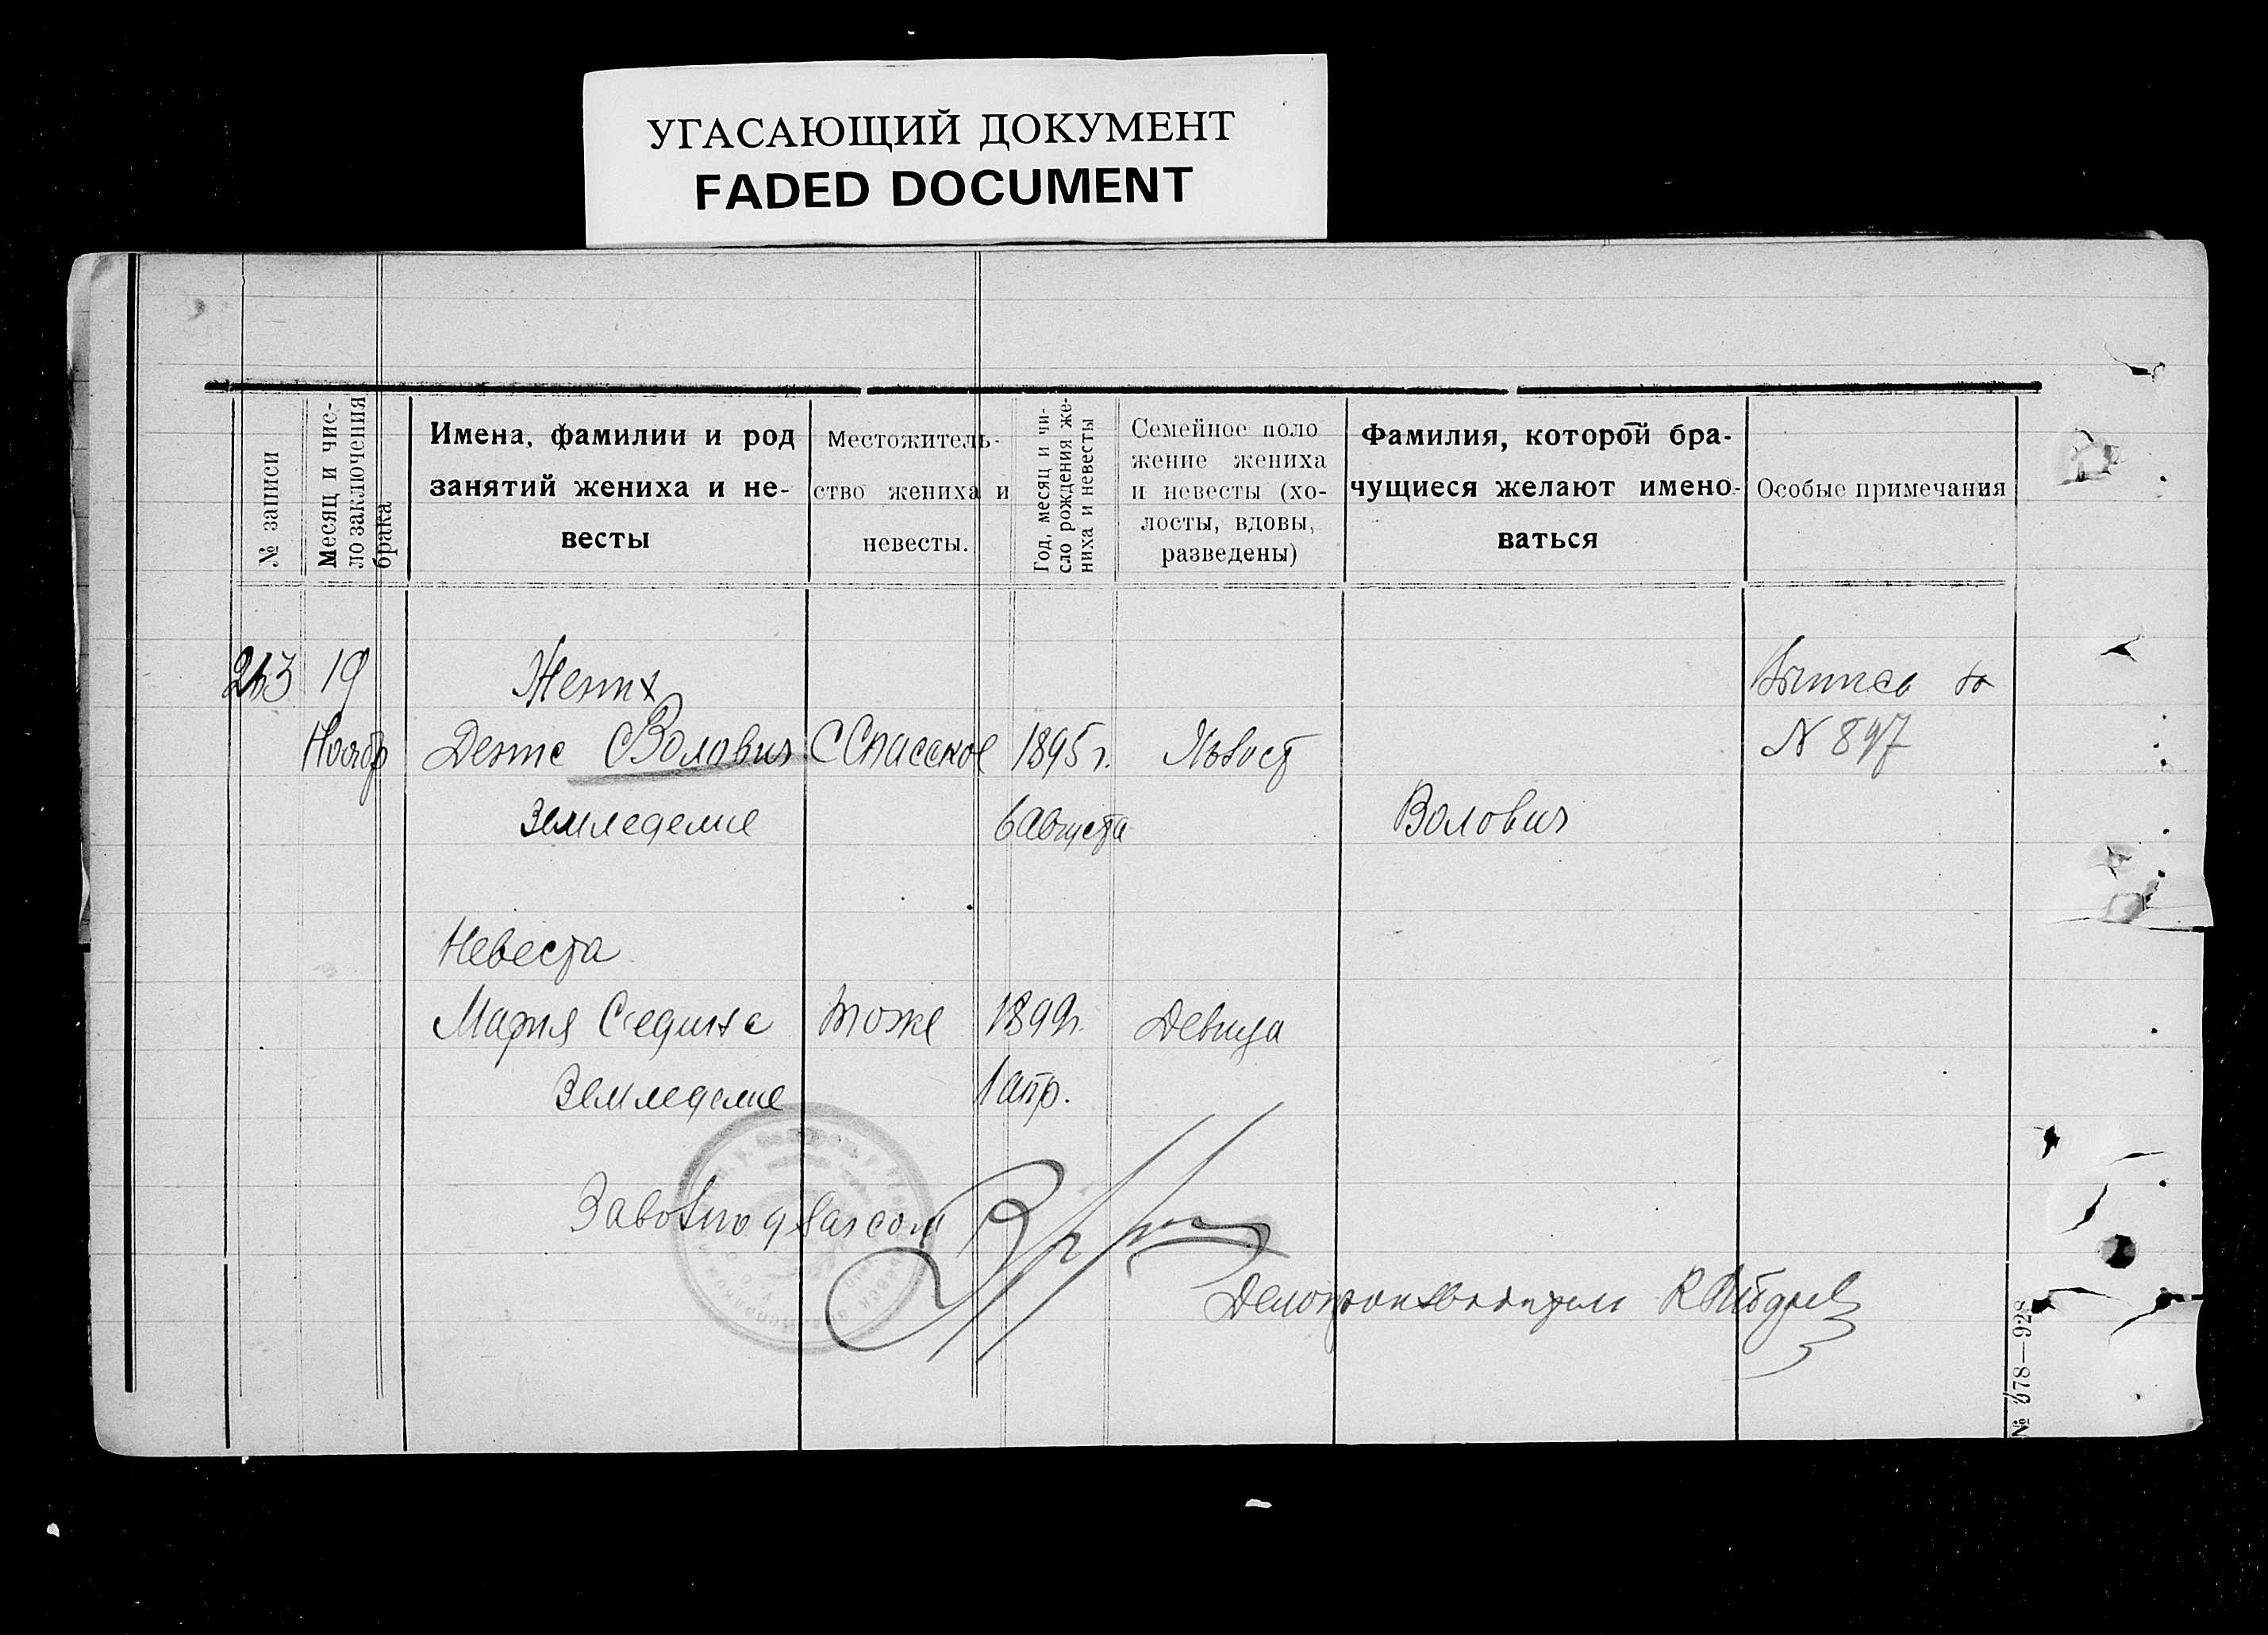 УГАСАЮЩИЙ ДОКУМЕНТ
FADED DOCUMENT
№ записи
Месяц и чис-
ло заключения
брака
Имена, фамилии и род
занятий жениха и не-
весты
Местожитель-
ство жениха и
невесты.
Год, месяц и чи-
сло рождения же-
ниха и невесты
Семейное поло
жение жениха
и невесты (хо-
лосты, вдовы,
разведены)
Фамилия, которой бра-
чущиеся желают имено-
ваться
Особые примечания
19
Ноябр
Жених
Денис Волович
Земледелие
С Спасское
1895 г.
6 Августа
Волович
№ 897
Невеста
Мария
Земледелие
тоже
1899 г.
1 апр.
Девица
Делопроизводитель
№ 678—928